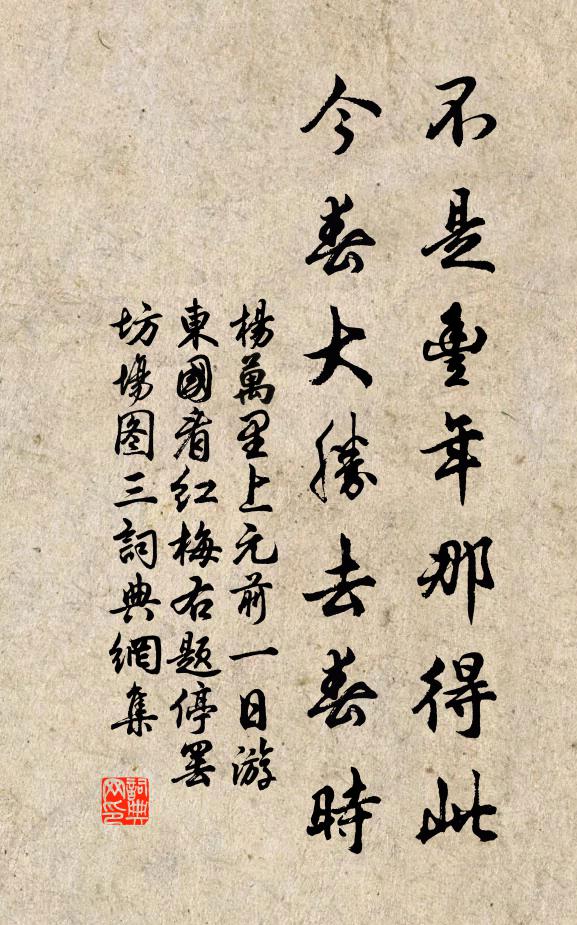 不是豐年那得此
今春大勝去春時
楊萬里上元前一日游
東國看红梅右题停罢
坊場图三詞典網集
詞典网印